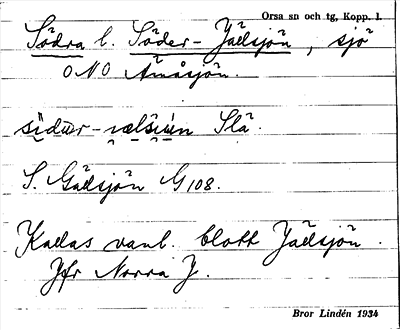 Orsa sn och tg, Kopp. l.
Södra l. Söder- Jälsjön, sjö
ONO Åmåsjön.
Slä.
S. Gälsjön G 108.
Kallas vanl. blott Jälsjön.
Jfr Norra J.
Bror Lindén 1934